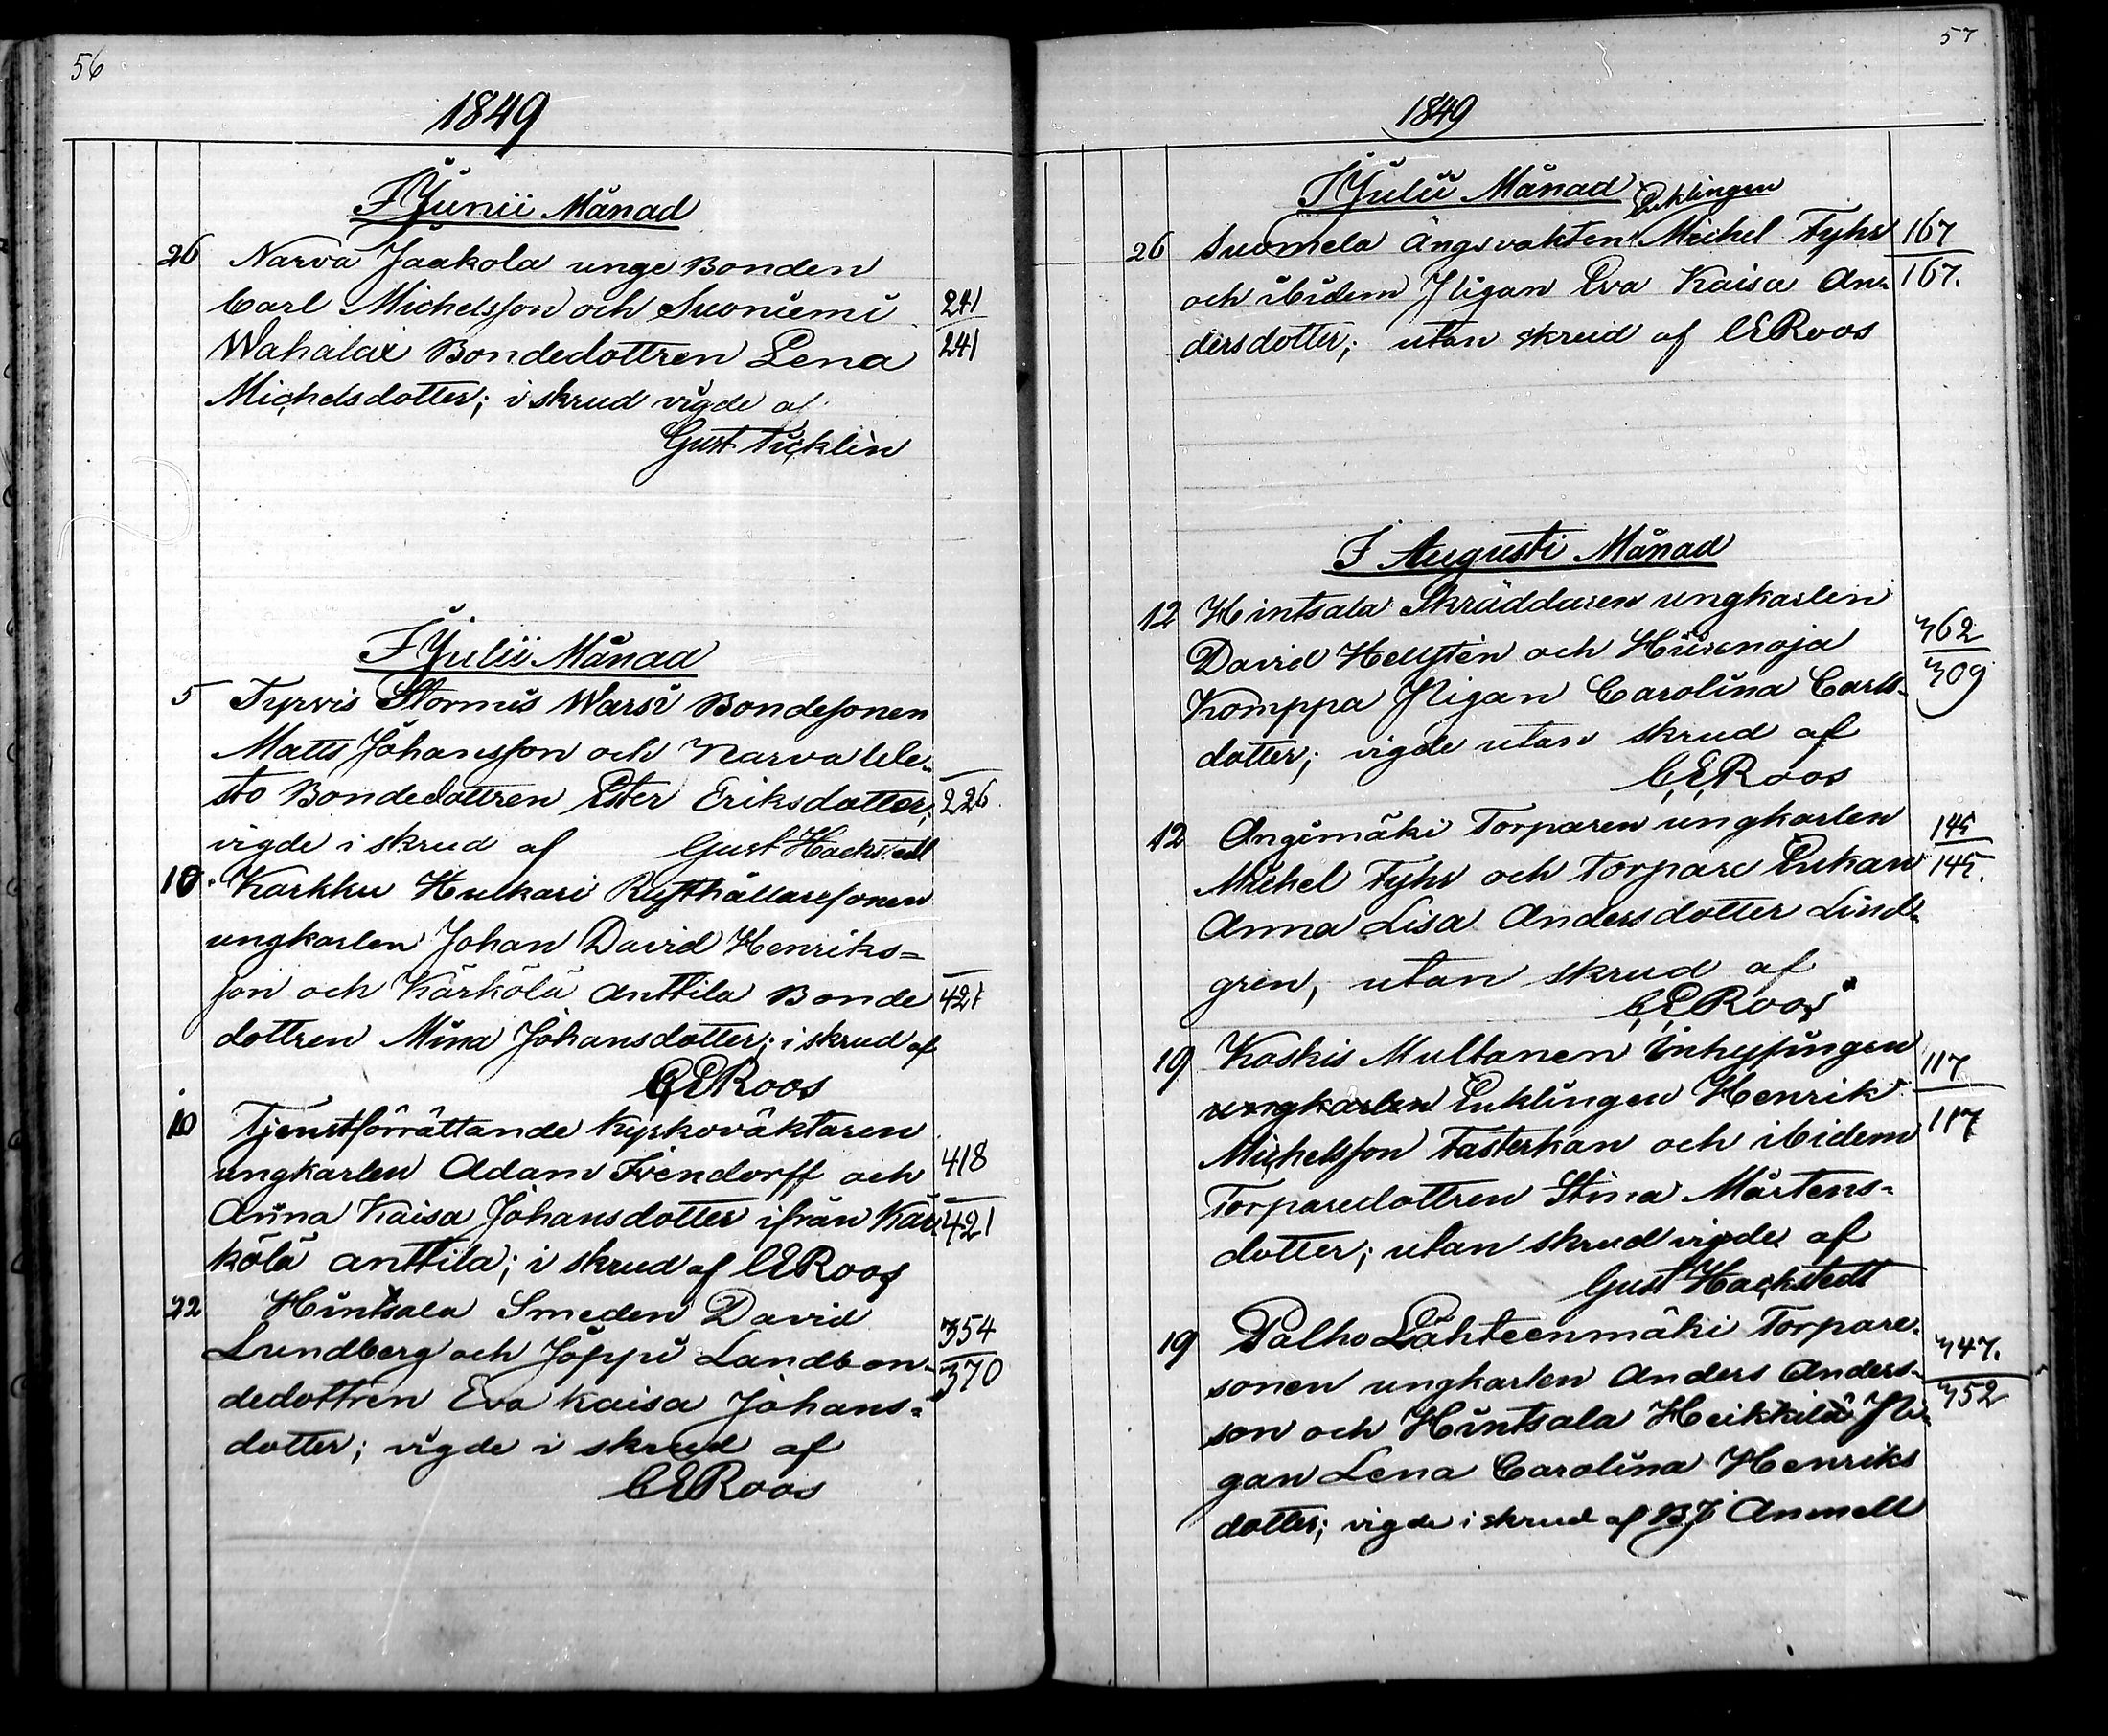 56
1849
I Junii Månad
26 Narva Jaakola unge Bonden
Carl Michelsson och Suoniemi 241
Wahalax Bondedottren Lena 241
Michelsdotter; i skrud vigde af
Gust Ticklén
I Julii Månad
5 Tyrvis Stormis Warsi Bondesonen
Matts Johansson och Narva Ule-
sto Bondedottren Ester Eriksdotter; 226.
vigde i skrud af Gust Hackstedt
10. Karkku Hulkari Rusthållaresonen
ungkarlen Johan David Henriks=
son och Kärkölä Anttila Bonde 421
dottren Mina Johansdotter; i skrud af
C,E,Roos
10 Tjenstförrättande Kyrkoväktaren
ungkarlen Adam Frendorff och 418
Anna Kaisa Johansdotter ifrån Kär- 421
kölä Anttila; i skrud af CERoos
22 Hintsala Smeden David 354
Lundberg och Joppi Landbon- 370
dedottren Eva Kaisa Johans=
dotter; vigde i skrud af
CERoos
57
1849
I Julii Månad
Enklingen
26 Suomela ängsvakten Michel Fyhr 167
och ibidem Pigan Eva Kaisa An- 167.
dersdotter; utan skrud af CERoos
I Augusti Månad
12 Hintsala Skräddaren ungkarlen 362
David Hellstén och Hiirenoja 309
Komppa Pigan Carolina Carls-
dotter; vigde utan skrud af
C,E,Roos
12 Angimäki Torparen ungkarlen 145
Michel Fyhr och Torpare Enkan 145.
Anna Lisa Andersdotter Lind-
gren, utan skrud af
C,E,Roos
19 Koskis Multanen Inhysingen 117
ungkarlen Enklingen Henrik 117
Michelsson Fasterkan och ibidem
Torparedottren Stina Mårtens-
dotter; utan skrud vigde af
Gust Hackstedt
19 Palho Lähteenmäki Torpare- 347.
sonen ungkarlen Anders Anders- 352
son och Hintsala Heikkilä Pi-
gan Lena Carolina Henriks
dotter; vigde i skrud af B.J Anmell